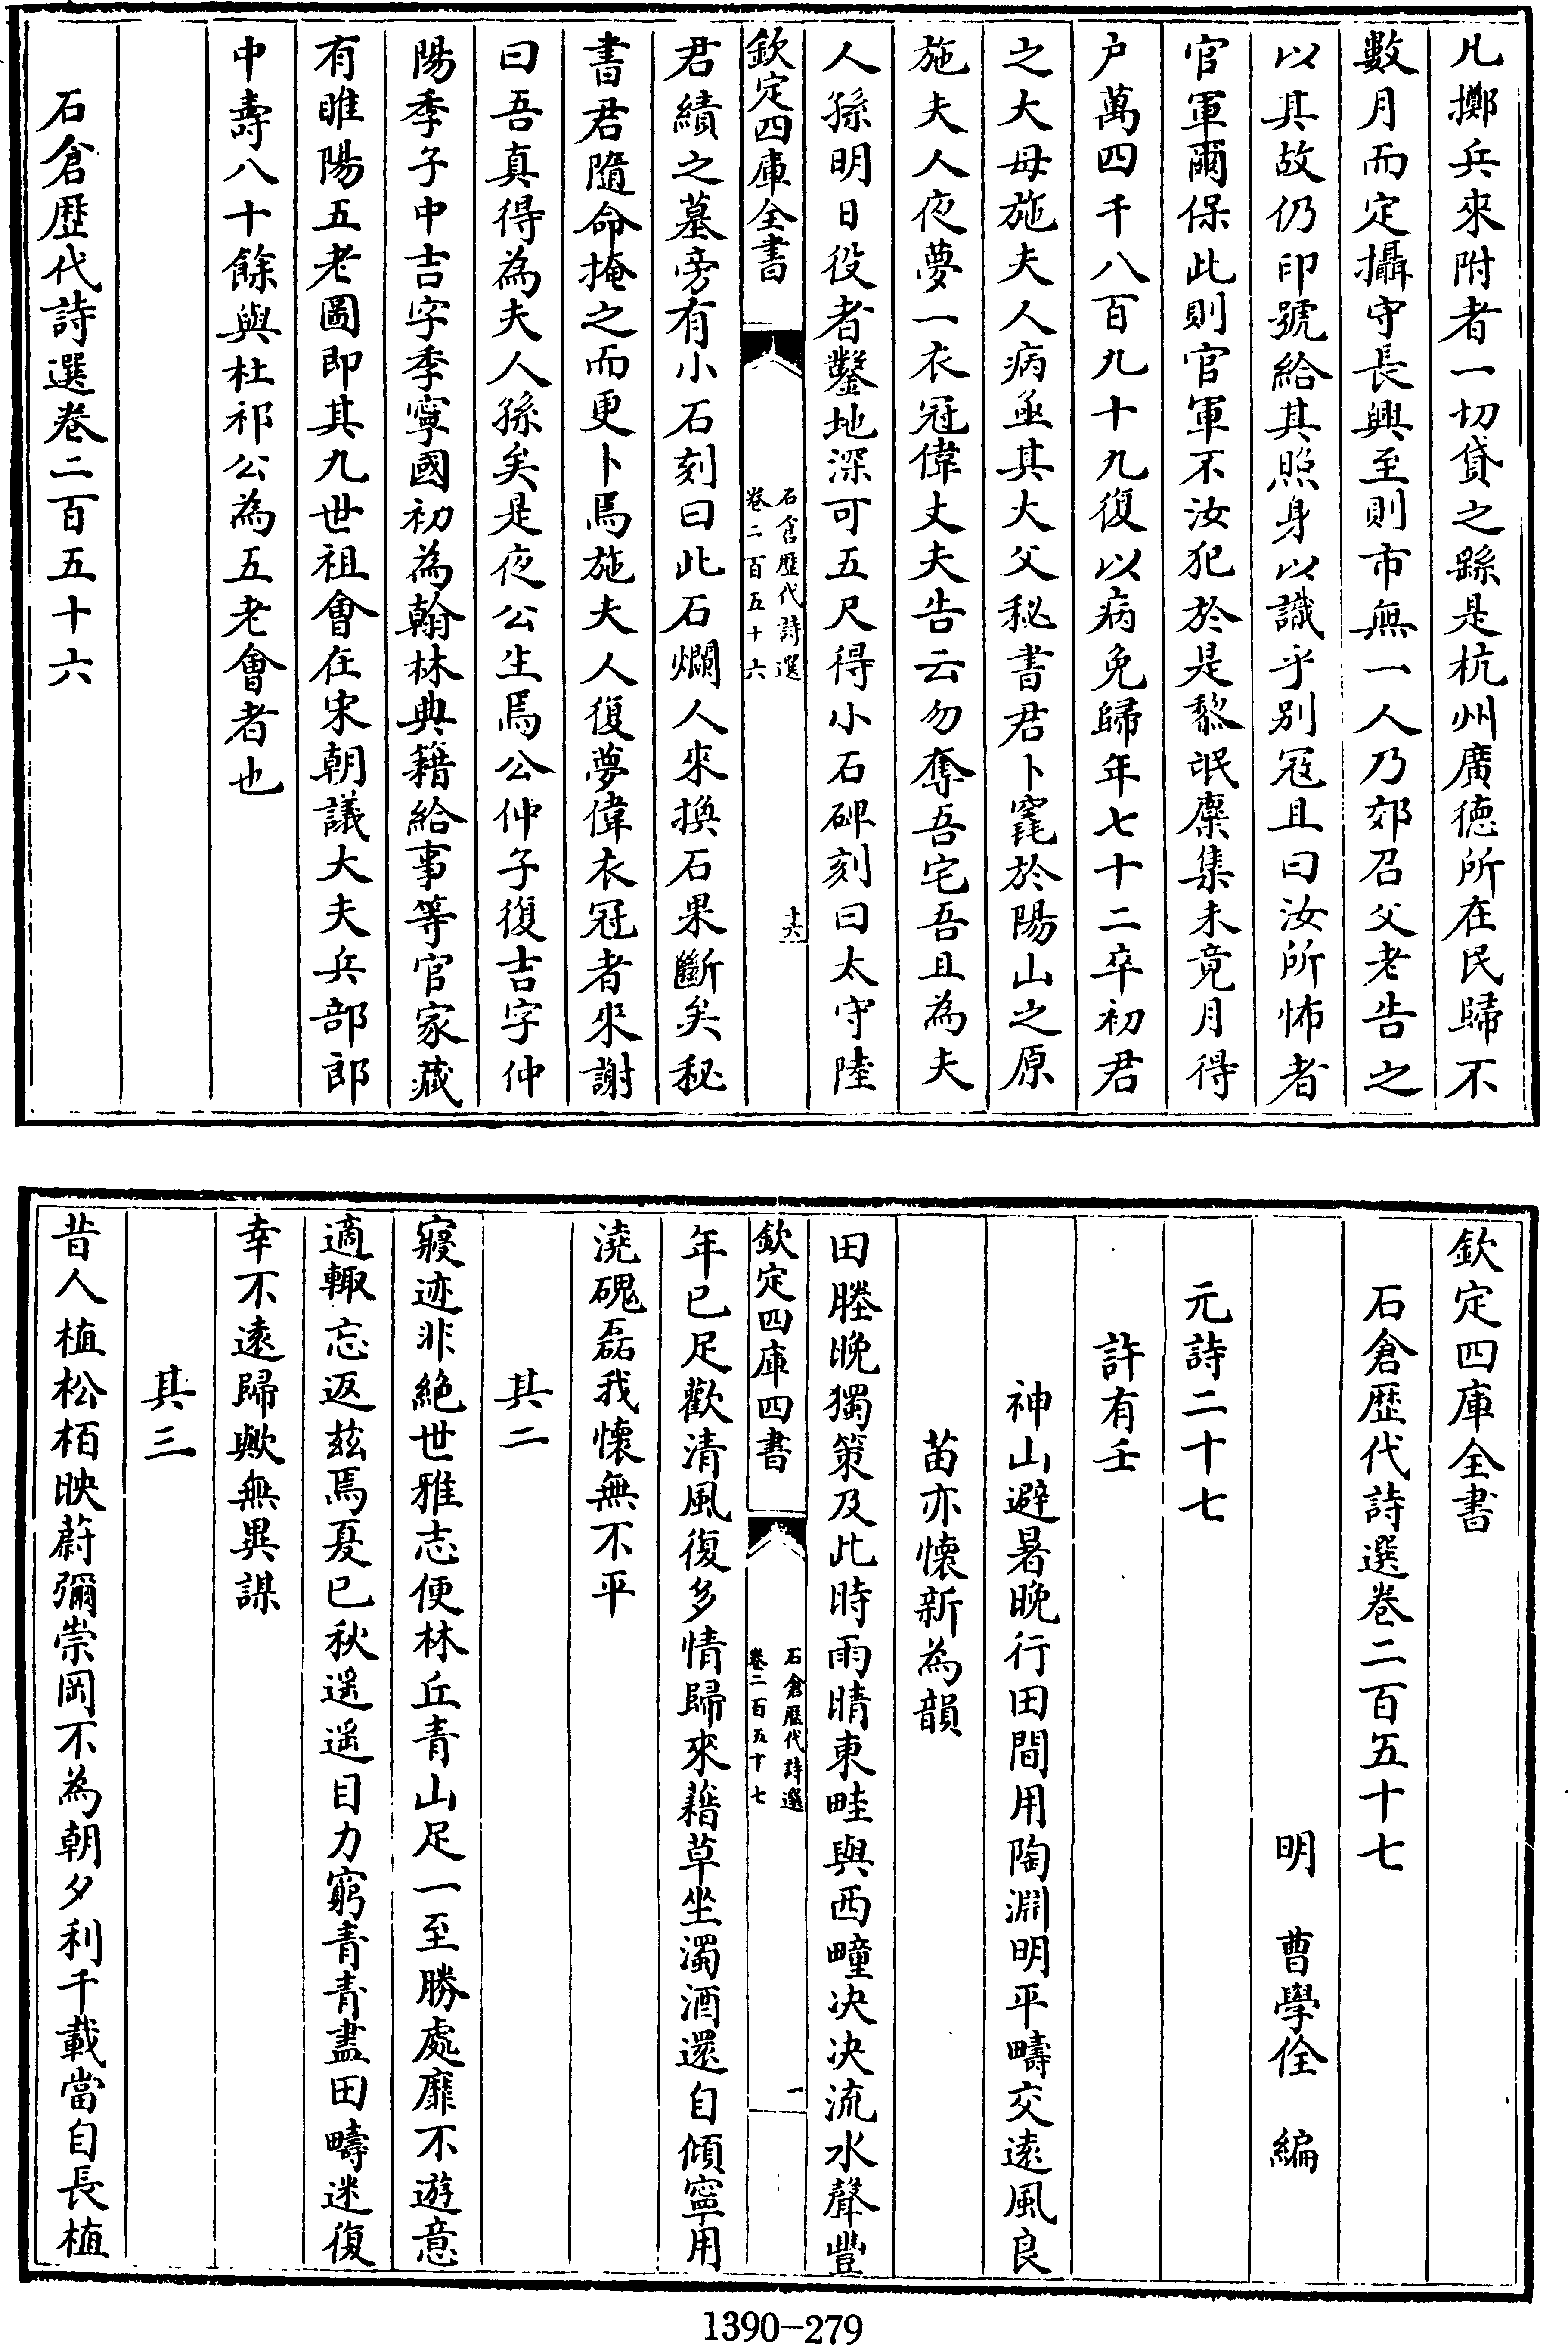 凡擲兵來附者一切貸之繇是杭州廣德所在民歸不
數月而定攝守長興至則市無一人乃郊召父老告之
以其故仍印號給其照身以識乎别冦且曰汝所怖者
官軍爾保此則官軍不汝犯於是黎氓麇集未竟月得
户萬四千八百九十九復以病免歸年七十二卒初君
之大母施夫人病亟其大父秘書君卜窀於陽山之原
施夫人夜夢一衣冠偉丈夫告云勿奪吾宅吾且為夫
人孫明日役者鑿地深可五尺得小石碑刻曰太守陸
欽定四庫全書
石倉歴代詩選
卷二百五十六
十六
君績之墓旁有小石刻曰此石爛人來換石果斷矣秘
書君隨命掩之而更卜焉施夫人復夢偉衣冠者來謝
曰吾真得為夫人孫矣是夜公生焉公仲子復吉字仲
陽季子中吉字季寧國初為翰林典籍給事等官家藏
有睢陽五老圖即其九世祖會在宋朝議大夫兵部郎
中壽八十餘與杜祁公為五老會者也
石倉歴代詩選卷二百五十六
欽定四庫全書
石倉歴代詩選卷二百五十七
明 曹學佺 編
元詩二十七
許有壬
神山避暑晚行田間用陶淵明平疇交遠風良
苗亦懷新為韻
田塍晚獨策及此時雨晴東畦與西疃決決流水聲豐
欽定四庫四書
石倉歴代詩選
卷二百五十七
一
年已足歡清風復多情歸來藉草坐濁酒還自傾寧用
澆磈磊我懷無不平
其二
寢迹非絶世雅志便林丘青山足一至勝處靡不遊意
適輙忘返兹焉夏已秋遥遥目力窮青青盡田疇迷復
幸不遠歸歟無異謀
其三
昔人植松栢映蔚彌崇岡不為朝夕利千載當自長植
1390-279